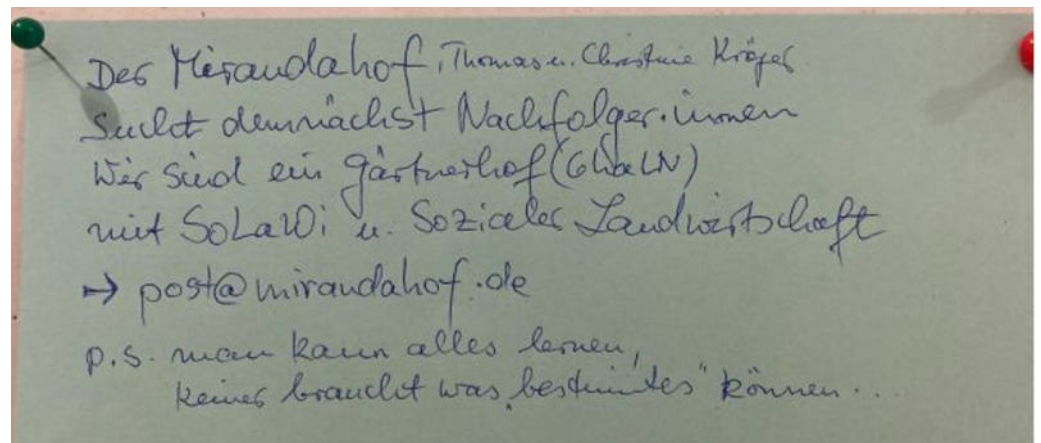 Der Mirandahof, Thomas u. Christine Kröger
Sucht demnächst Nachfolger.innen
Wir sind ein Gärtnerhof (6ha LN)
mit SoLaWi u. Sozialer Landwirtschaft
→ post@mirandahof.de
p.s. man kann alles lernen,
keiner braucht was „bestimmtes" können...